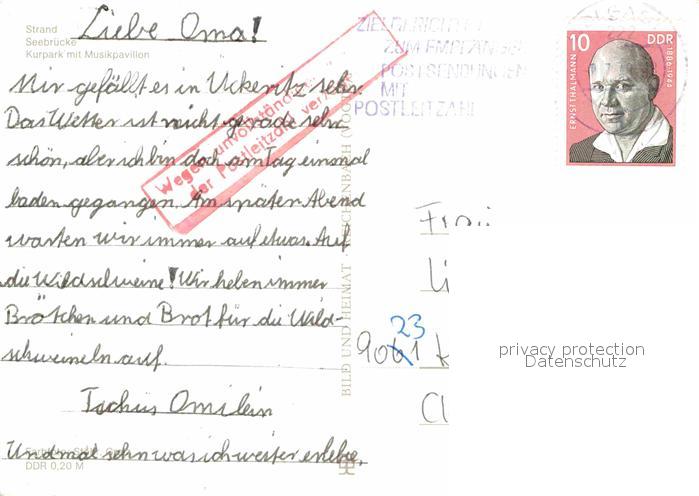 Liebe Oma!
Strand
Seebrücke
Kurpark mit Musikpavillon
Mir gefällt es in Uckeritz sehr.
Das Wetter ist nicht gerade sehr
schön, aber ich bin doch am Tag einmal
baden gegangen. Am späten Abend
warten wir immer auf etwas. Auf
die Wildschweine! Wir heben immer
Brötchen und Brot für die Wild-
schweineln auf.
Tschüs Omilein
Und mal sehn was ich weiter erlebe.
DDR 0,20 M
Wegen unvollständ
der Postleitzahl verz
BILD UND HEIMAT REICHENBACH (VOGTL)
ZUM EMPFÄNGER
POSTSENDUNGEN
MIT
POSTLEITZAHL
10 DDR
ERNST THÄLMANN 1886-1944
23
9061
privacy protection
Datenschutz